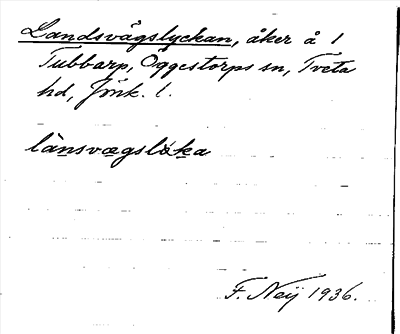 Landsvägslyckan, åker å 1
Tubbarp, Öggestorps sn, Tveta
hd, Jönk. l.
länsvægslöka
F. Neij 1936.